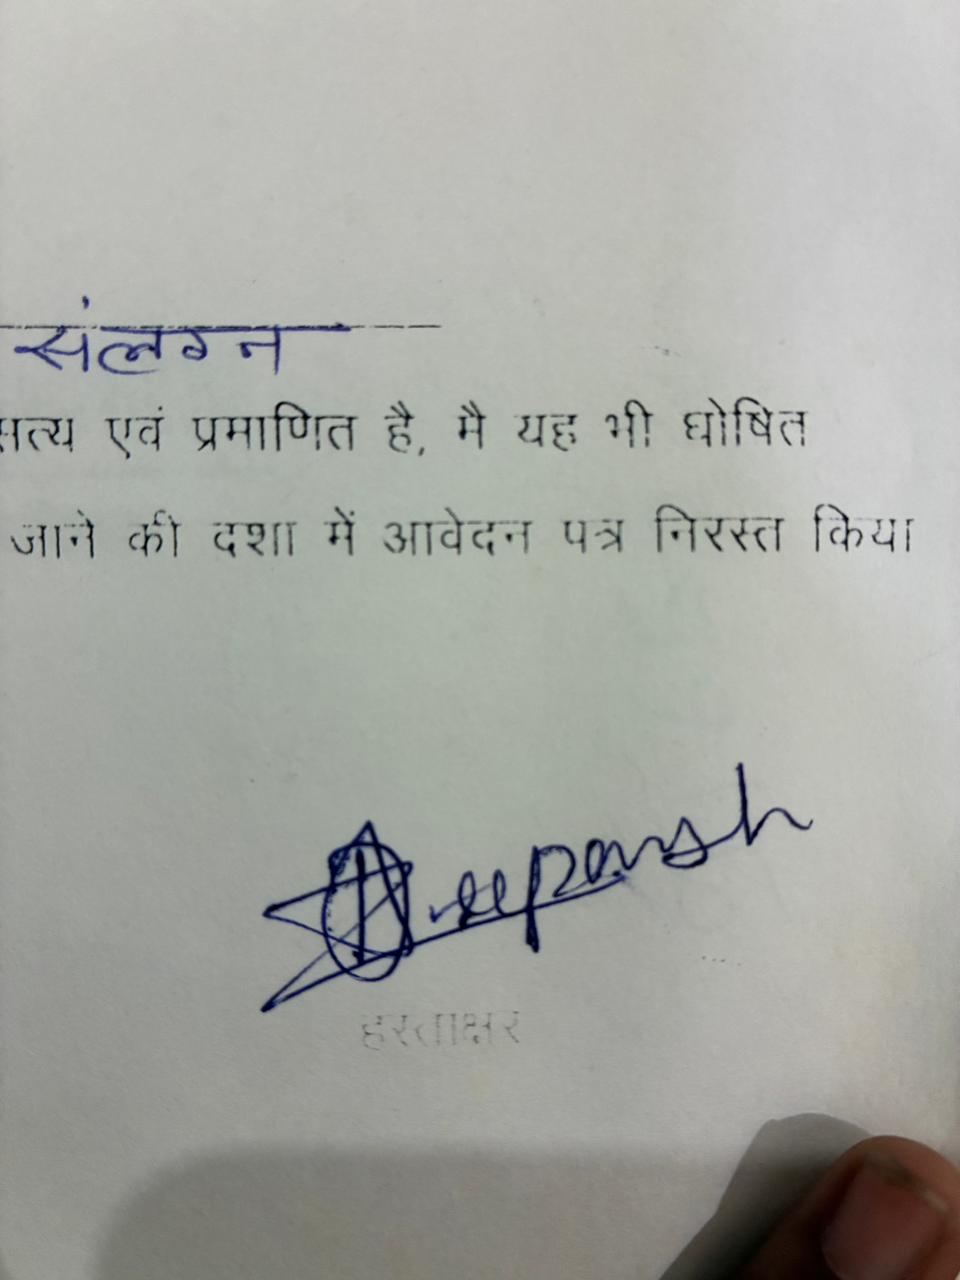 संलग्न
सत्य एवं प्रमाणित है, मै यह भी घोषित
जाने की दशा में आवेदन पत्र निरस्त किया
Deepansh
हस्ताक्षर